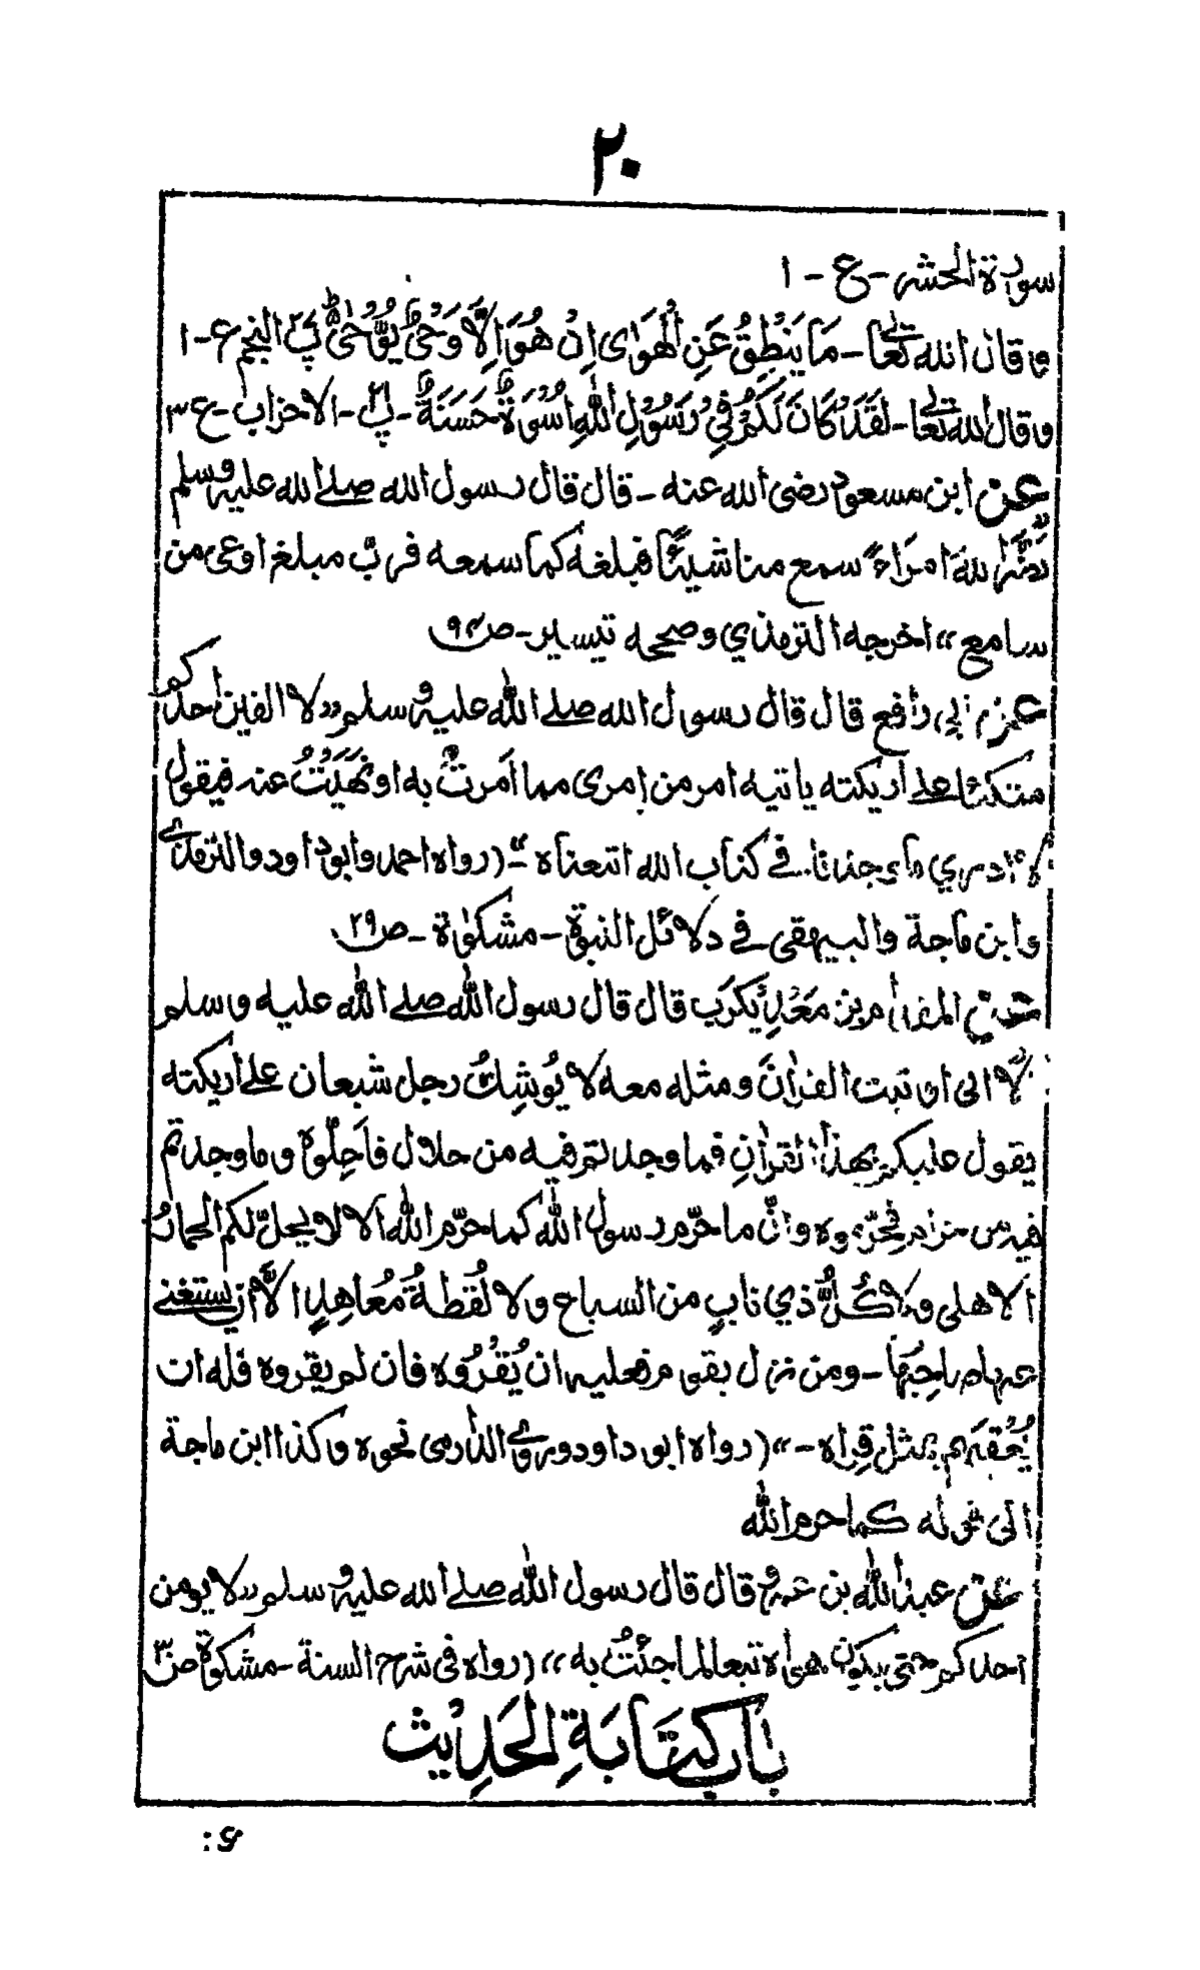 ٢٠
سورة الحشر - ع - ١
و قال الله تعالى - مَا يَنْطِقُ عَنِ الْهَوَاى اِنْ هُوَ اِلَّا وَحْىٌ يُّوْحٰى پ النجم ع - ١
و قال الله تعالى - لَقَدْ كَانَ لَكُمْ فِيْ رَسُوْلِ اللهِ اُسْوَةٌ حَسَنَةٌ - پ٢١ - الاحزاب - ع ٣
عن ابن مسعود رضى الله عنه - قال قال رسول الله صلے الله عليه وسلم
نَضَّرَ اللهُ امرَاءً سمع منا شيئًا فبلغه كما سمعه فربّ مبلغ اوعى من
سامع ،، اخرجه الترمذي وصححه تيسير - ص
عن ابي رافع قال قال رسول الله صلے الله عليه وسلم ,, لا الفين احدكم
متكئا علے اريكته ياتيه امر من امرى مما اَمَرتُ به او نَهَيْتُ عنه فيقول
لا ادري ما وجدنا فے كتاب الله اتبعناه - ،، (رواه احمد وابوداود والترمذے
وابن ماجة والبيهقى فے دلائل النبوة - مشكوٰة - ص ٢٩
عن المقدام بن مَعْدِيكَرِب قال قال رسول الله صلے الله عليه وسلم
,, لا انى اوتيت القراٰنَ ومثله معه لا يُوْشِكُ رجل شبعان علے اريكته
يقول عليكم بهذا القراٰنِ فما وجدتم فيه من حلال فاَحِلُّوْهُ وما وجدتم
فيه من حرام فحَرّموه وانّ ما حرّم رسول الله كما حرّم الله الا لا يحلّ لكم الحمارُ
الاهلى ولا كُلُّ ذي نابٍ من السباع ولا لُقطةُ مُعاهِدٍ الاَّ ان يستغنے
عنها صاحِبُها - ومن نزل بقوم فعليهم ان يُقْرُوْه فان لم يقروه فله ان
يُعْقِبَهم بمثل قِراه - ،، (رواه ابو داود وروى الدارمى نحوه وكذا ابن ماجة
الى قوله كما حرم الله
عن عبد الله بن عمرو قال قال رسول الله صلے الله عليه وسلم ,, لا يومن
احدكم حتى يكون هواه تبعا لما جئْتُ به ،، (رواه فى شرح السنة - مشكوة ص٣
بابُ كِتَابَةِ الْحَدِيْث